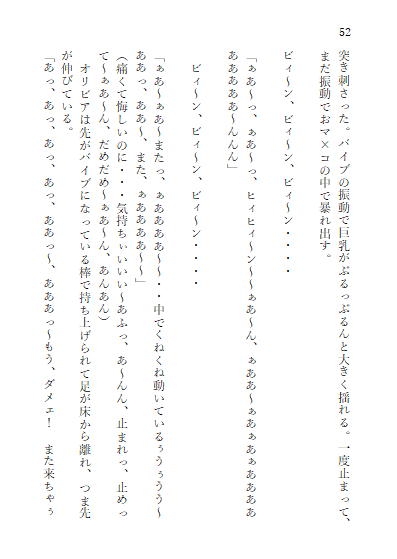 52
突き刺さった。バイブの振動で巨乳がぷるっぷるんと大きく揺れる。一度止まって、
まだ振動でおマ×コの中で暴れ出す。
ビィ〜ン、ビィ〜ン、ビィ〜ン・・・・
「ぁあ〜っ、ぁあ〜っ、ヒィヒィ〜ン〜〜ぁあ〜ん、ぁああ〜ぁあぁあぁあああああ
あああああ〜んんん」
ビィ〜ン、ビィ〜ン、ビィ〜ン・・・・
「ぁあ〜ぁあ〜またっ、ぁああああ〜〜・・中でくねくね動いているぅうぅうう〜
ああっ、ああ〜、また、ぁああああ〜〜」
（痛くて悔しいのに・・・気持ちぃいいい〜あふっ、あ〜んん、止まれっ、止めっ
て〜ぁあ〜ん、だめだめ〜ぁあ〜ん、あんあん）
オリビアは先がバイブになっている棒で持ち上げられて足が床から離れ、つま先
が伸びている。
「あっ、あっ、あっ、あっ、あっ、ああっ〜、あああっ〜もう、ダメェ！　また来ちゃぅ